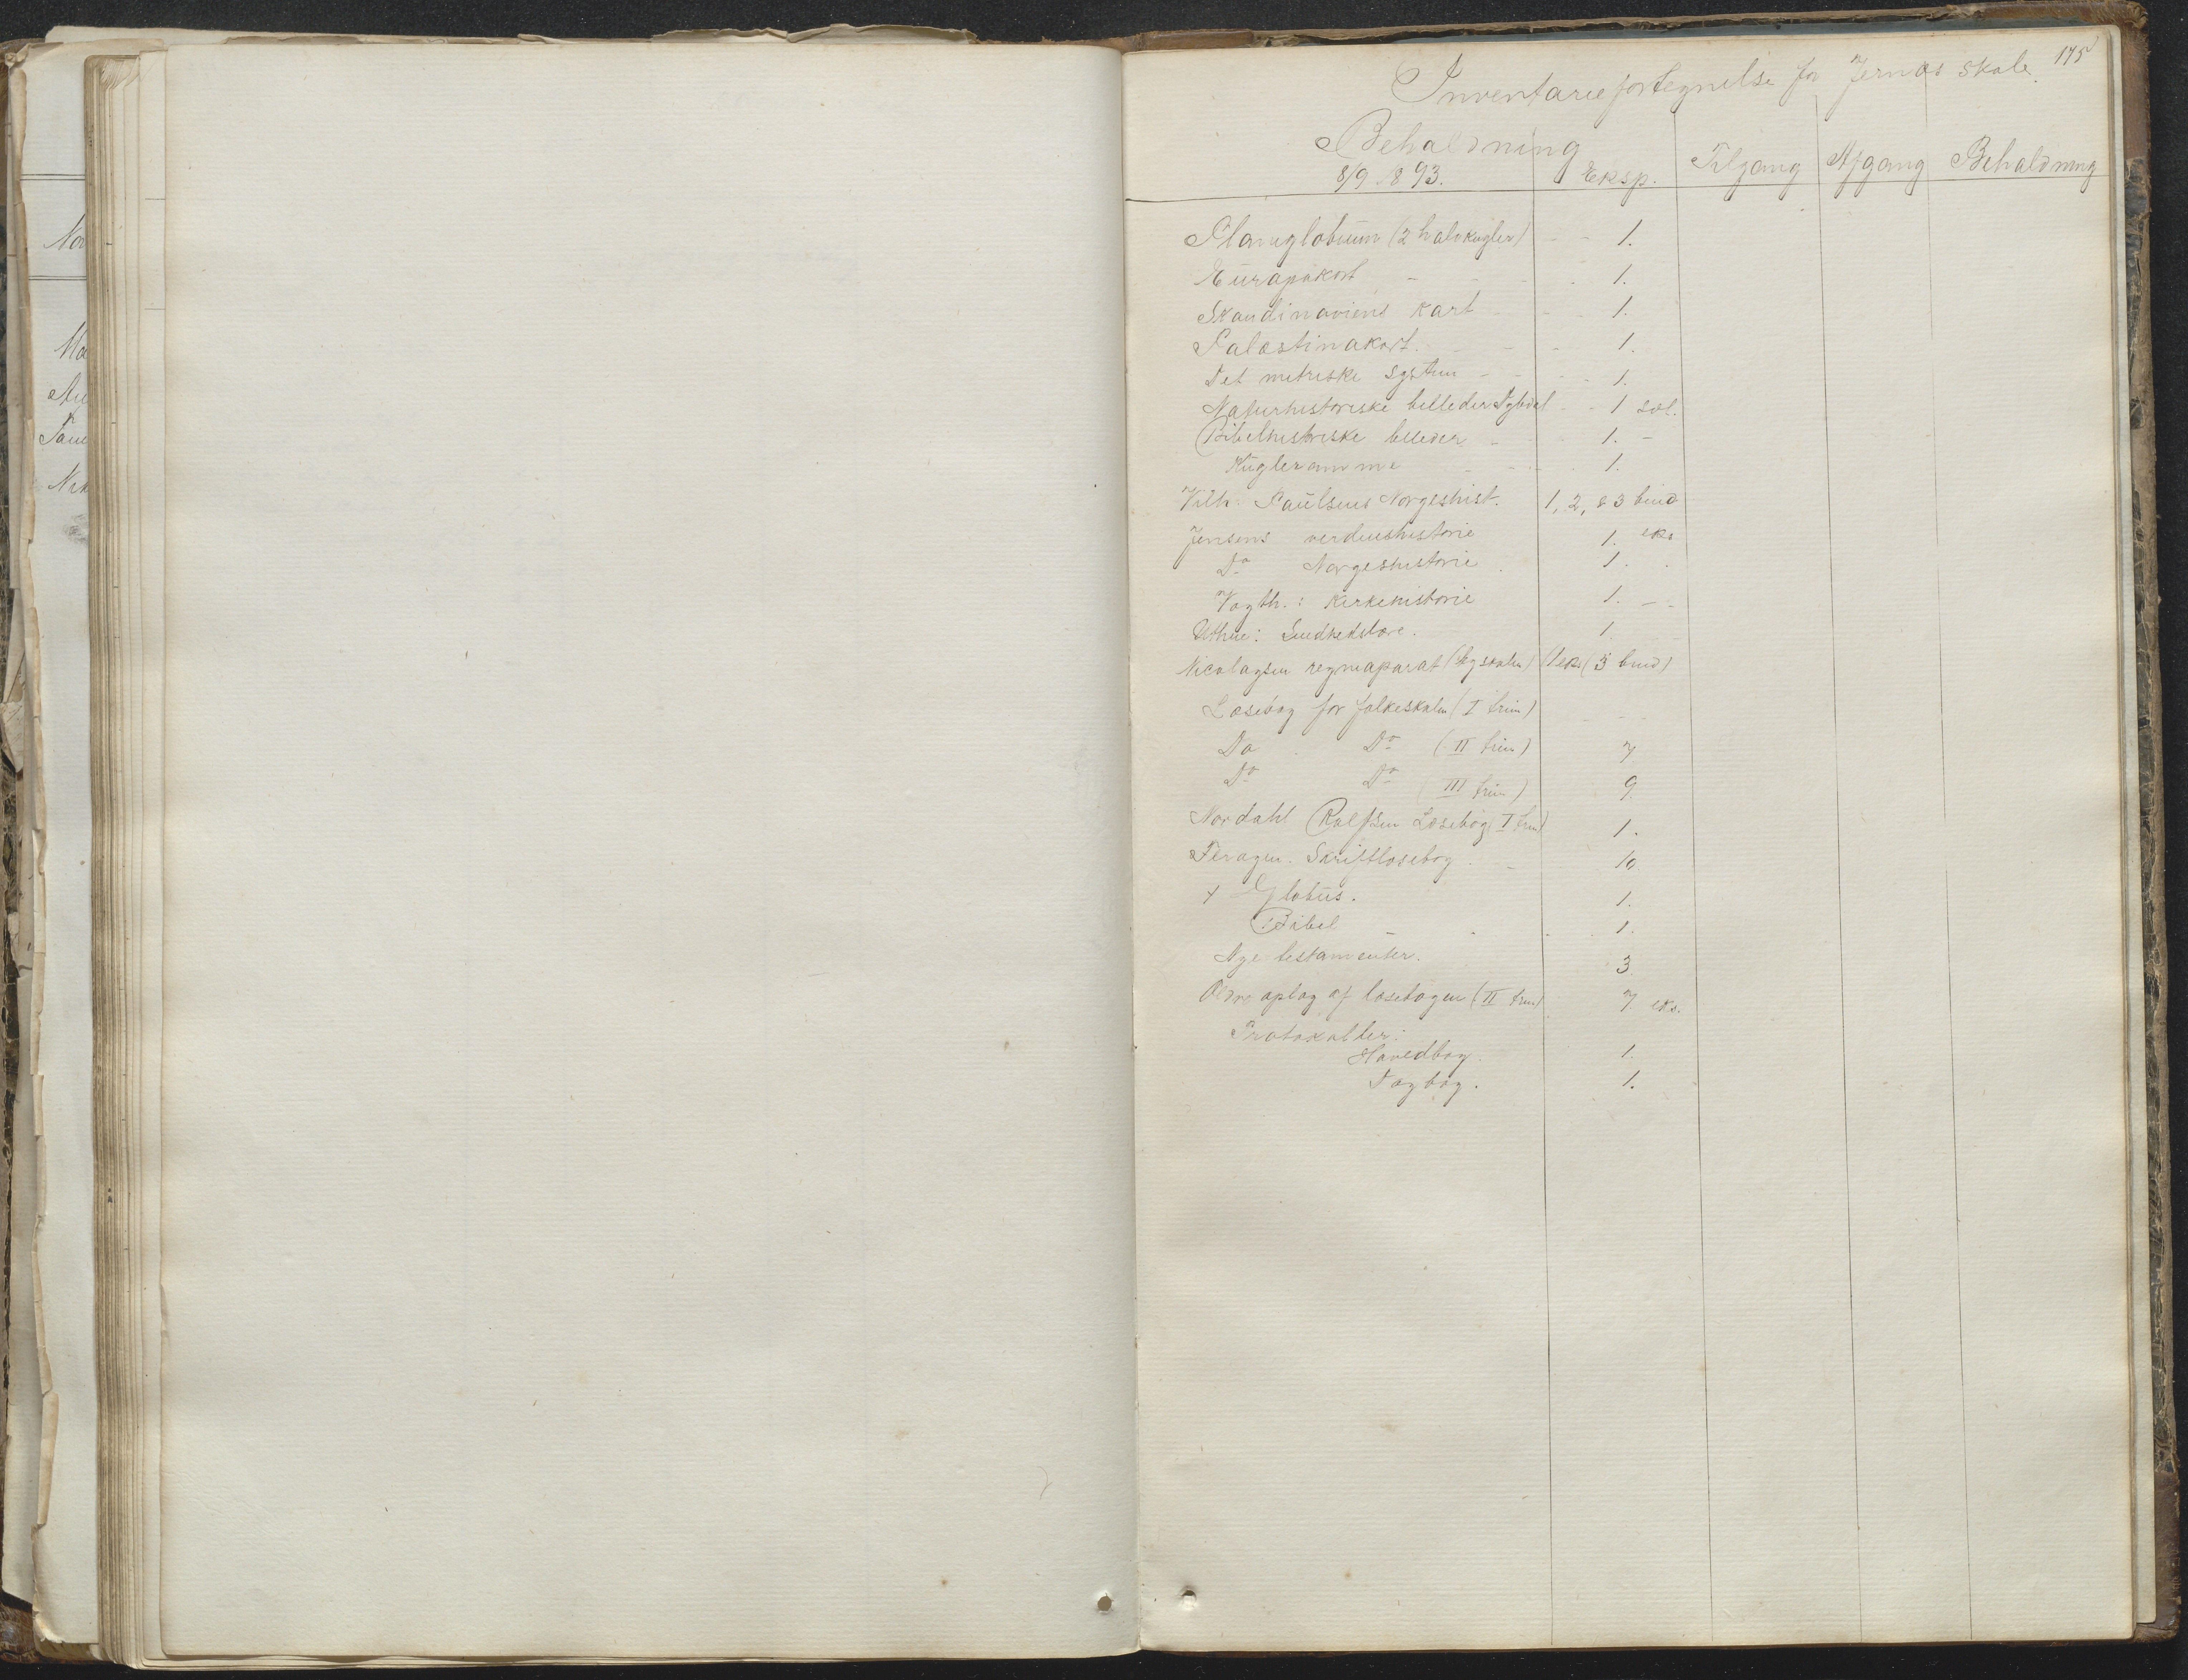 Nor
Ma
Nik
175
Inventariefortegnelse for Jernæs skole.
Beholdning
8/9 1893. Eksp. Tilgang Afgang Beholdning
Planiglobium (2 halvkugler) - - 1.
Europakort - - 1.
Skandinaviens kart - - 1.
Palæstinakort. - - - 1.
Det metriske system - - - 1.
Naturhistoriske billeder Dybdal - 1 sæt.
Bibelhistoriske billeder - - 1. -
Kugleramme - - 1.
Vilh. Poulsens Norgeshist. 1, 2, & 3 bind
Jensens verdenshistorie 1. eks
Do Norgeshistorie . 1. .
Vogth.: Kirkehistorie 1. - -
Uthue: Sundhedslære. 1.
Nicolaysen regneaparat 1 eks (5 bind)
Læsebog for folkeskolen (I trin) - - -
Do Do (II trin) 7
Do Do (III trin) 9
Nordahl Rolfsen Læsebog I trin) 1.
Skriftlæsebog. - 10
Globus. 1.
Bibel - - - 1.
Nye testamenter. 3
Ældre oplag af læsebogen (II trin) 7 eks.
Protokoller:
Hovedbog. 1.
Dagbog. 1.